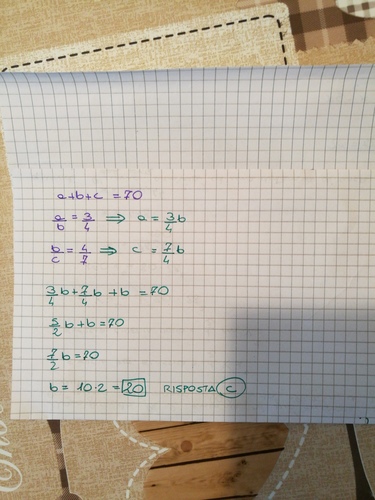 a+b+c = 70
a/b = 3/4 ⇒ a = 3/4 b
b/c = 4/7 ⇒ c = 7/4 b
3/4 b + 7/4 b + b = 70
5/2 b + b = 70
7/2 b = 70
b = 10·2 = 20 RISPOSTA C